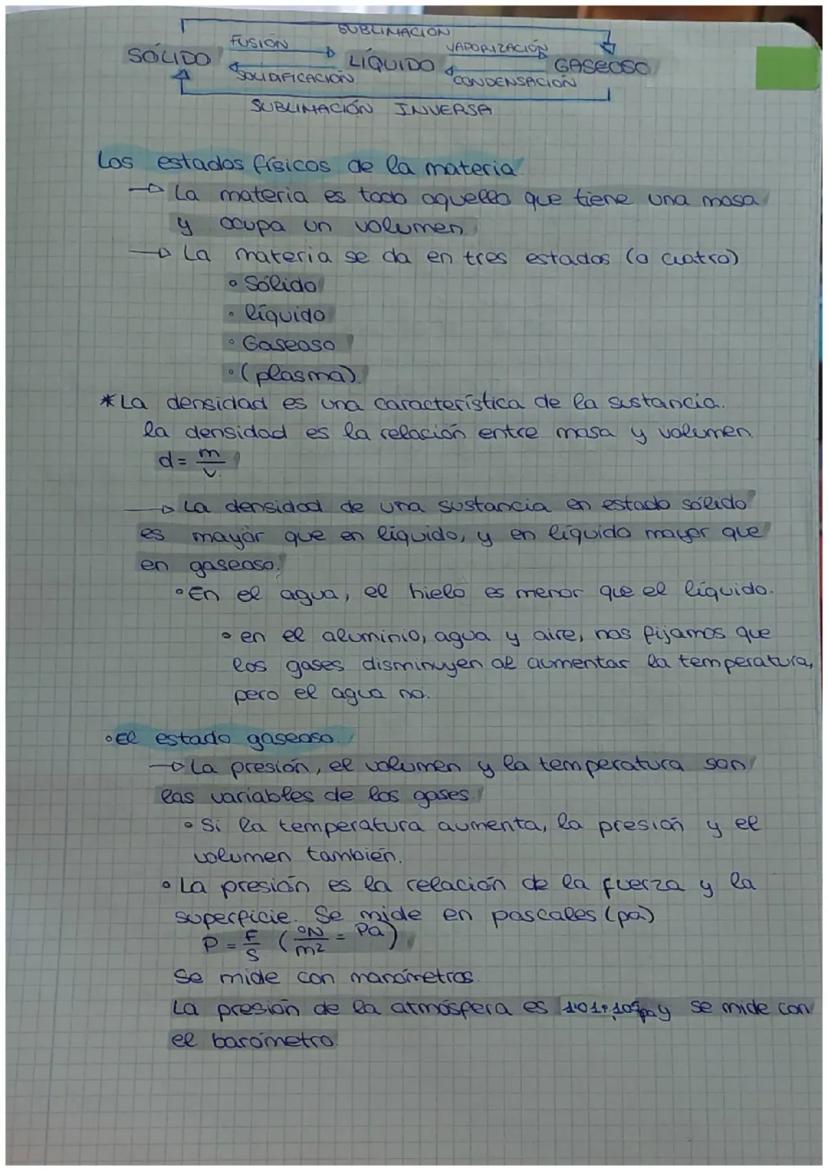 SUBLIMACIÓN
SÓLIDO FUSIÓN LÍQUIDO VAPORIZACIÓN GASEOSO
SOLIDIFICACIÓN CONDENSACIÓN
SUBLIMACIÓN INVERSA
Los estados físicos de la materia
→ La materia es todo aquello que tiene una masa
y ocupa un volumen
→ La materia se da en tres estados (o cuatro)
• Sólido
• líquido
• Gaseoso
• (plasma).
* La densidad es una característica de la sustancia.
la densidad es la relación entre masa y volumen
d = m/v.
→ La densidad de una sustancia en estado sólido
es mayor que en líquido, y en líquido mayor que
en gaseoso.
• En el agua, el hielo es menor que el líquido.
• en el aluminio, agua y aire, nos fijamos que
los gases disminuyen al aumentar la temperatura,
pero el agua no.
• El estado gaseoso.
→ La presión, el volumen y la temperatura son
las variables de los gases.
• Si la temperatura aumenta, la presión y el
volumen también.
• La presión es la relación de la fuerza y la
superficie. Se mide en pascales (pa)
P = F/S (N/m2 = Pa)
Se mide con manómetros.
La presión de la atmósfera es y se mide con
el barómetro